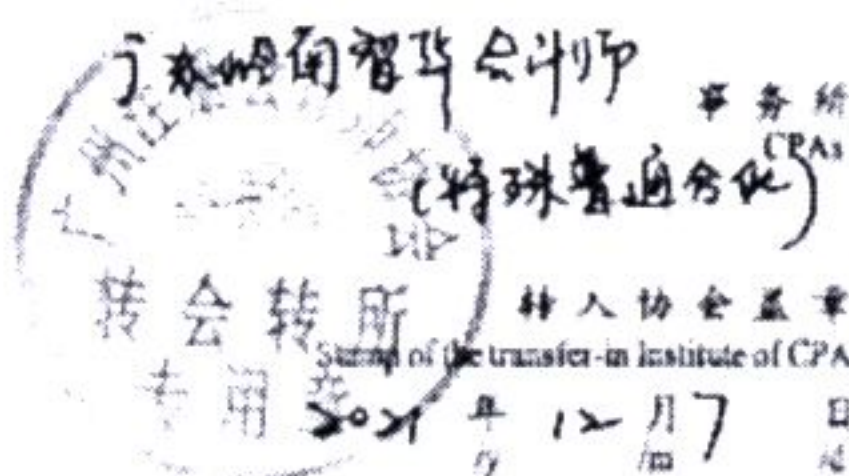 广东岭南智华会计师
事务所
CPAs
(特殊普通合伙)
转会转所
转入协会盖章
Stamp of the transfer-in Institute of CPA
专用章
2021 年 12 月 7 日
/y /m /d